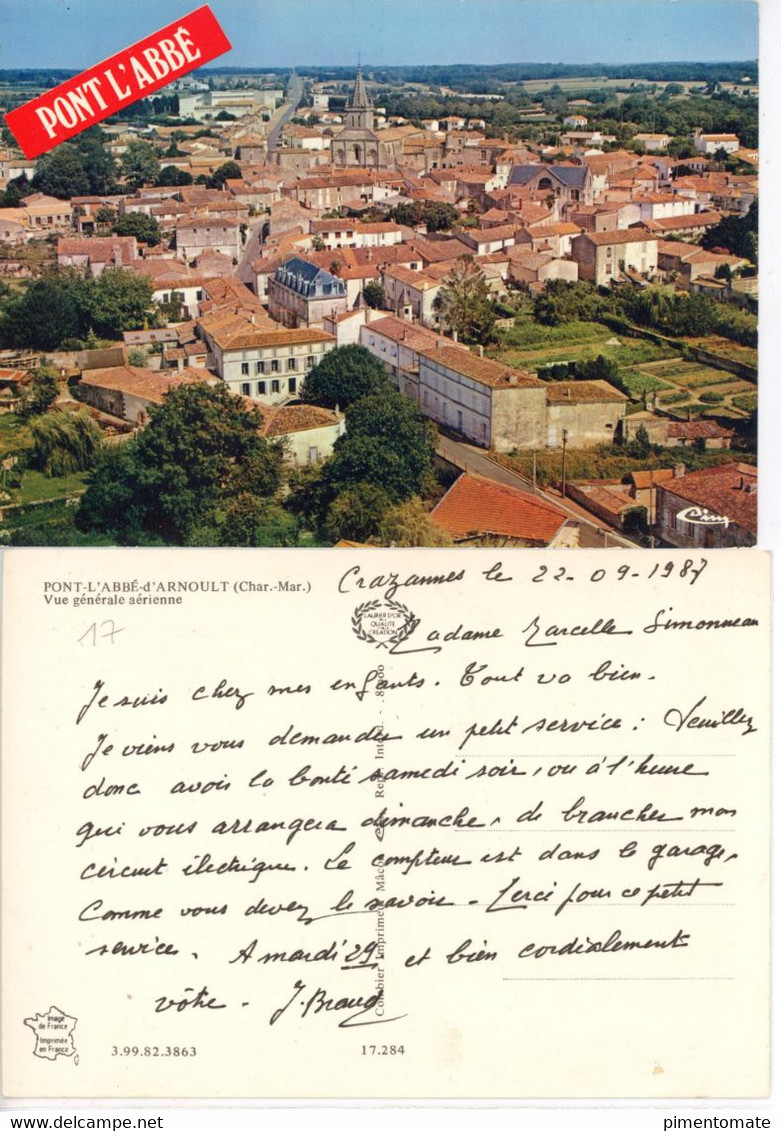 PONT L'ABBÉ
cim
PONT-L'ABBÉ-d'ARNOULT (Char.-Mar.)
Vue générale aérienne
17
LAURIER D'OR
DE LA
QUALITÉ
CRÉATION
Crazannes le 22-09-1987
Madame Marcelle Simonneau
Je suis chez mes enfants. Tout va bien.
Je viens vous demander un petit service : Veuillez
donc avoir la bonté samedi soir, ou à l'heure
qui vous arrangera dimanche, de brancher mon
circuit électrique. Le compteur est dans le garage,
Comme vous devez le savoir - Merci pour ce petit
service. A mardi 29 et bien cordialement
vôtre - J. Braud
Combier Imprimeur Mâcon
Image
de France
Imprimée
en France
3.99.82.3863
17.284
pimentomate